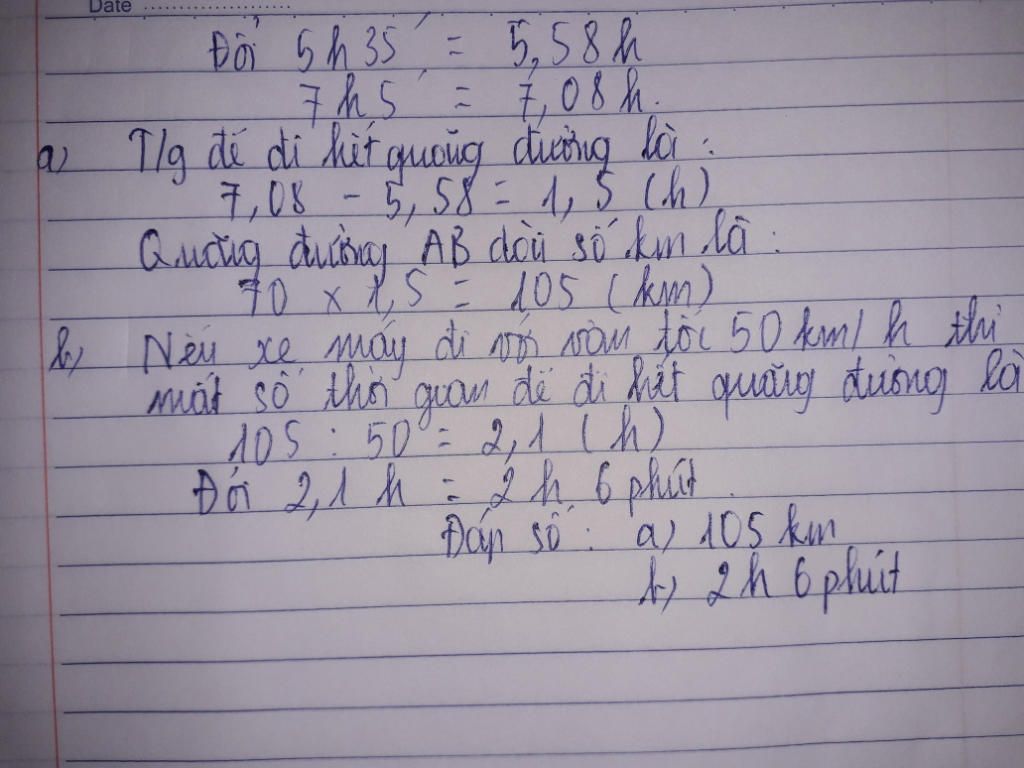 Date
Đổi 5h 35' = 5,58h
7h5' = 7,08h.
a) T/g để đi hết quãng đường là:
7,08 - 5,58 = 1,5 (h)
Quãng đường AB dài số km là:
70 x 1,5 = 105 (km)
b) Nếu xe máy đi với vận tốc 50 km/h thì
mất số thời gian để đi hết quãng đường là
105 : 50 = 2,1 (h)
Đổi 2,1 h = 2 h 6 phút.
Đáp số: a) 105 km
b) 2 h 6 phút